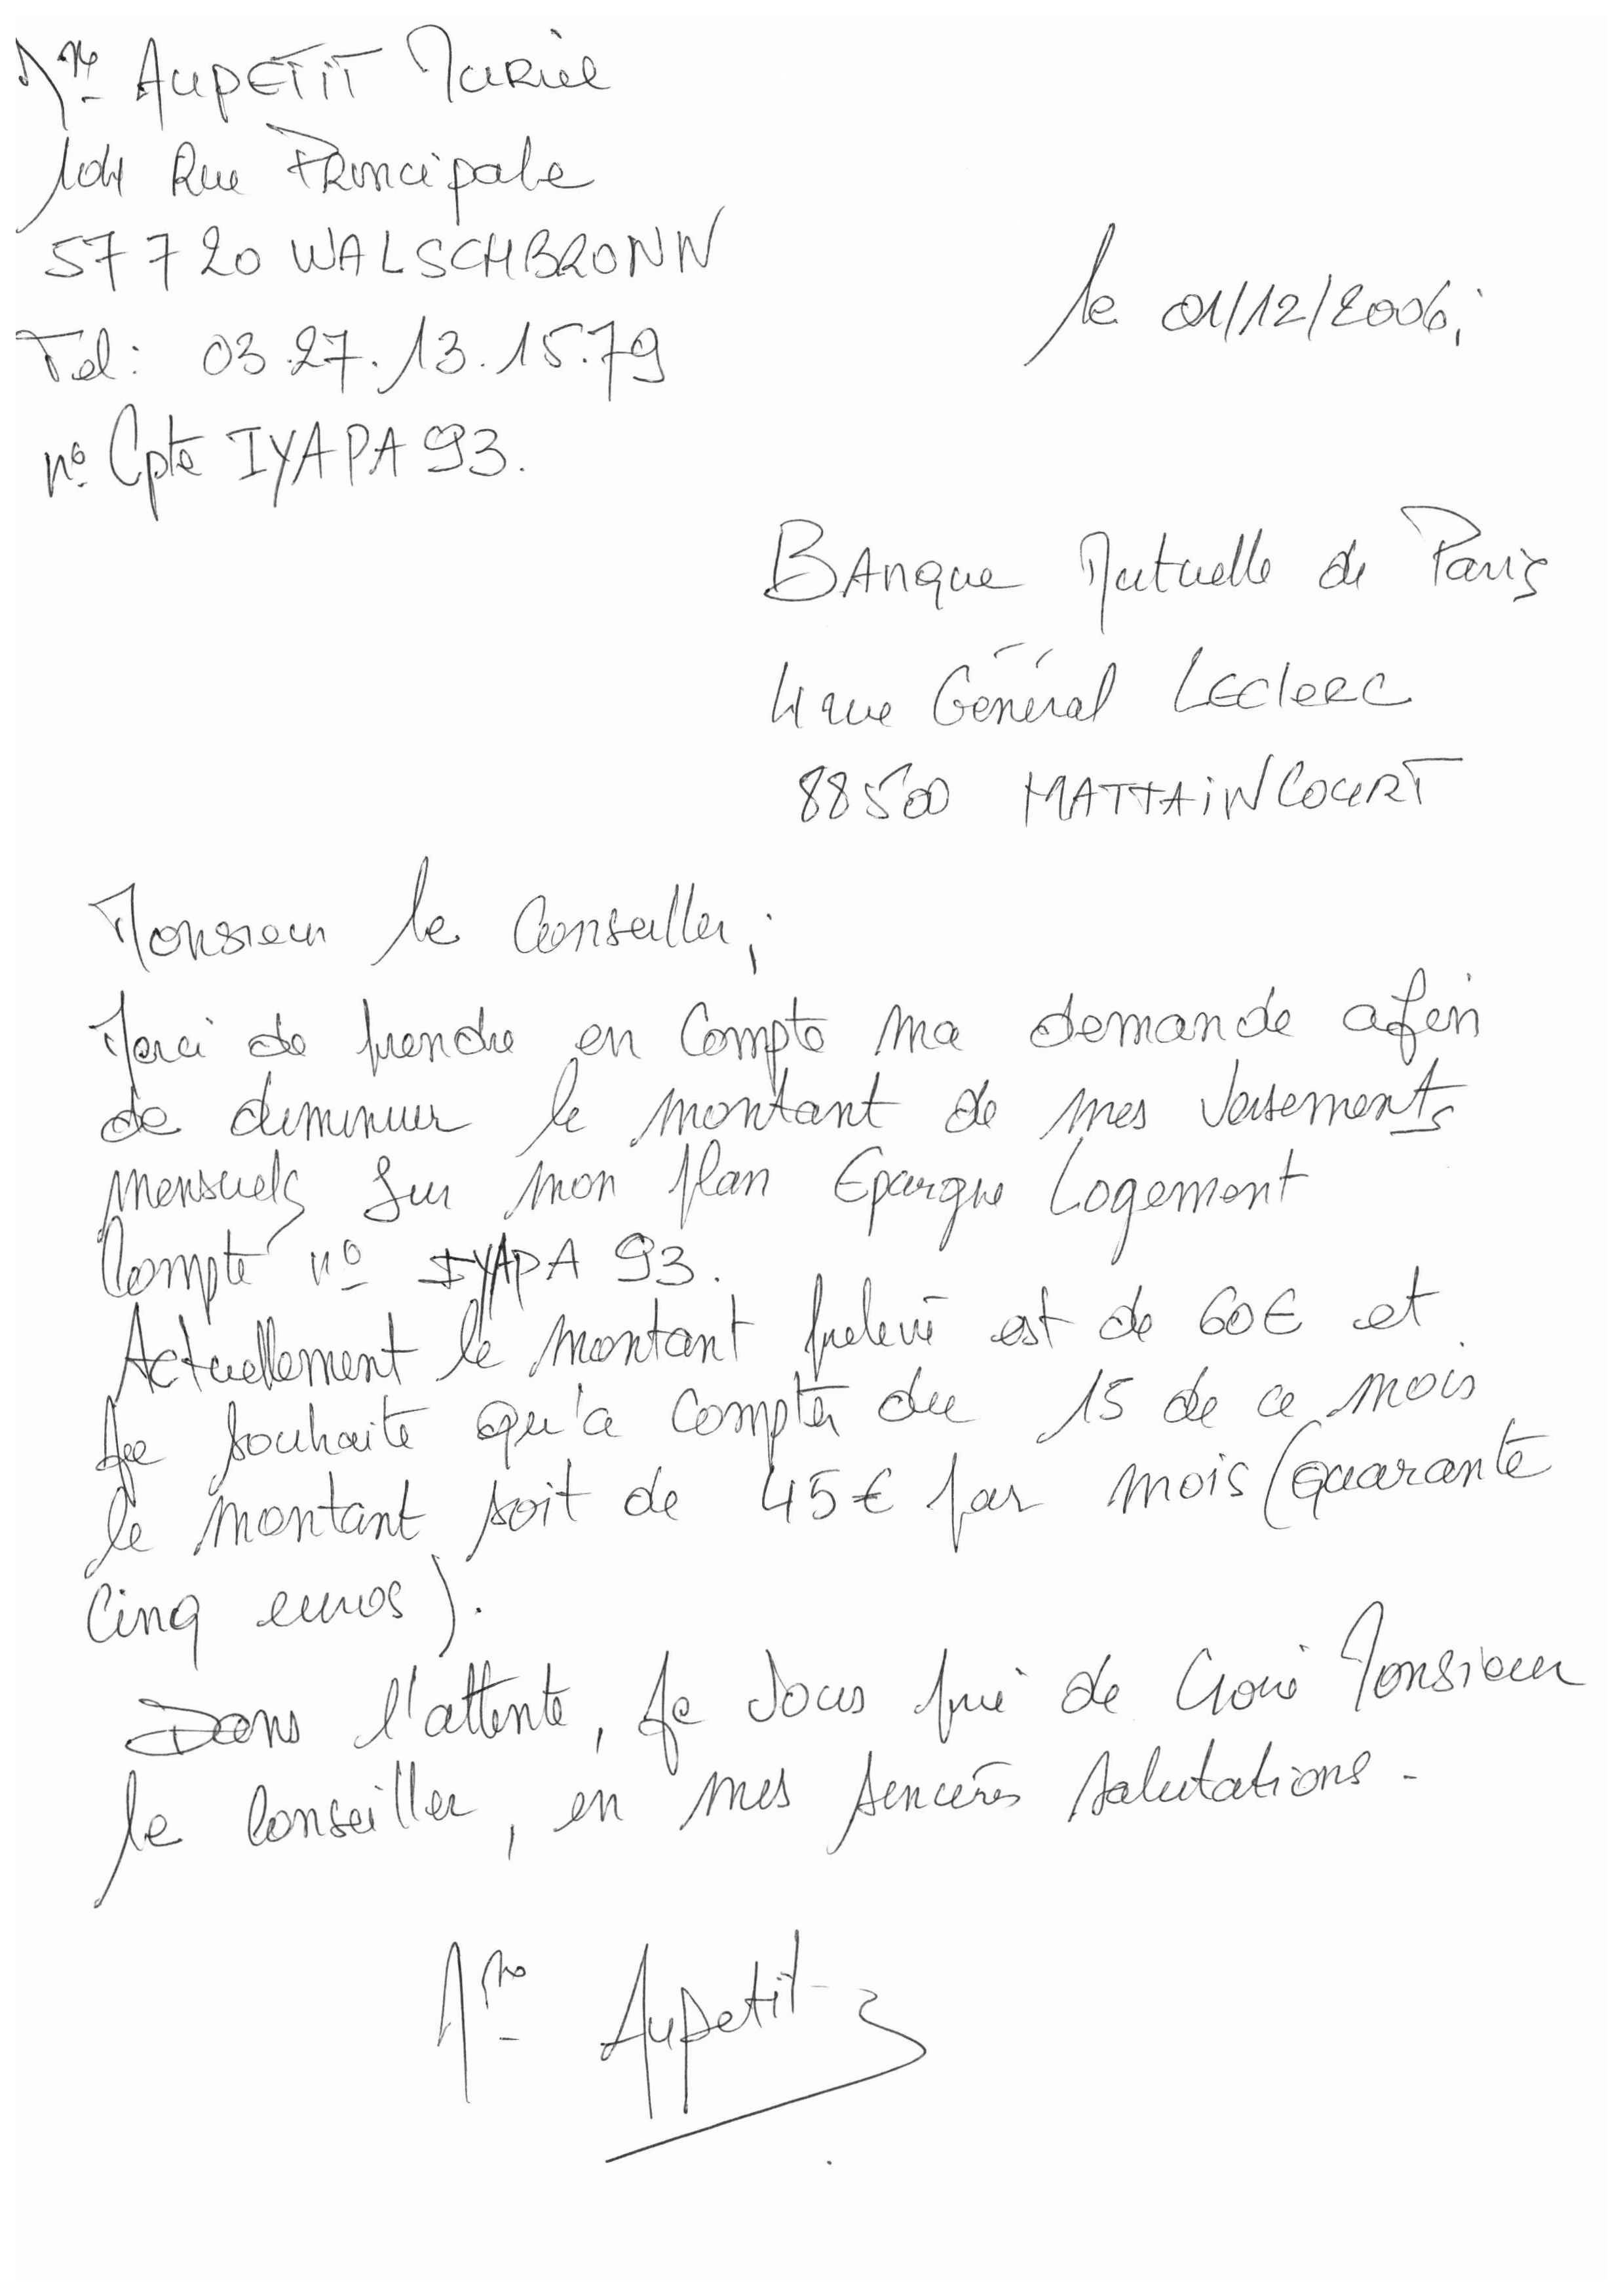 Mme AUPETIT Muriel
104 Rue Principale
57720 WALSCHBRONN
Tel: 03.27.13.15.79
le 01/12/2006,
n° Cpte IYAPA 93.
BAnque Mutuelle de Paris
4 rue Général Leclerc
88500 MATTAiNCOURT
Monsieur le Conseiller,
Merci de prendre en Compte ma demande afin
de diminuer le montant de mes versements
mensuels sur mon plan Epargne Logement
Compte n° IYAPA 93.
Actuellement le montant prelevé est de 60€ et
je souhaite qu'a compter du 15 de ce mois
le montant soit de 45€ par mois (quarante
Cinq euros).
Dans l'attente, je vous prie de croire Monsieur
le Conseiller, en mes sincères salutations.
Mme Aupetit